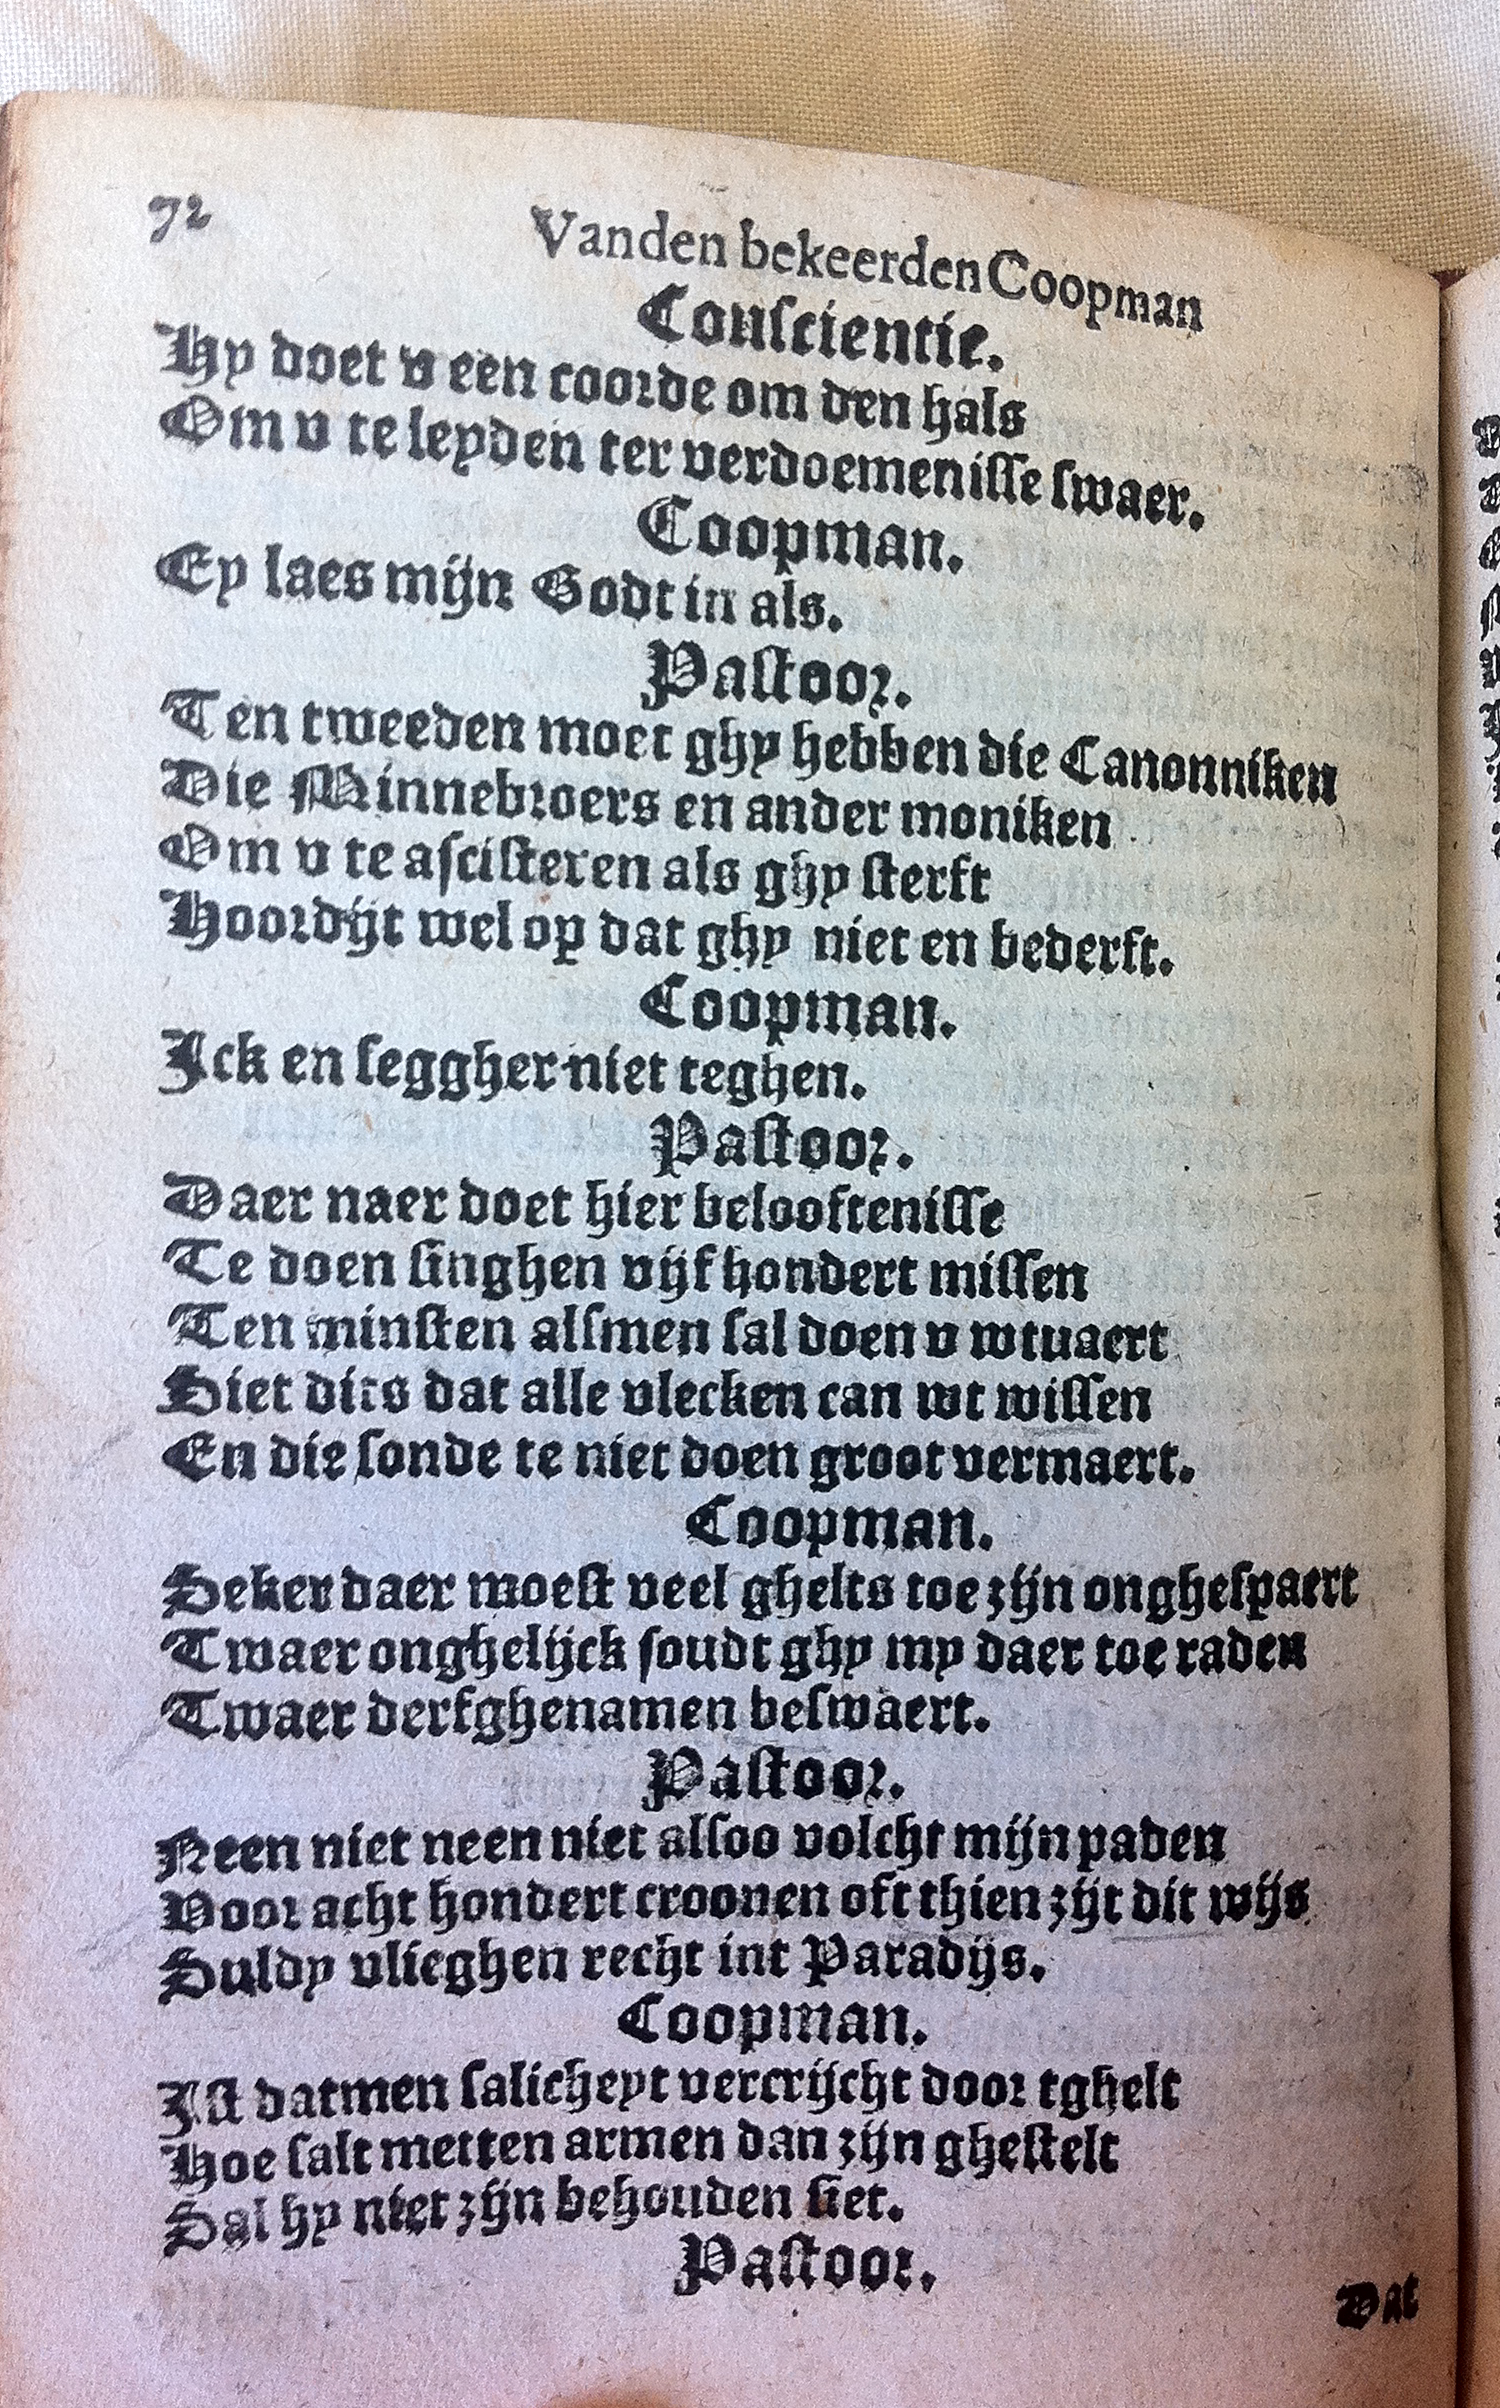 72
Vanden bekeerden Coopman
Conscientie.
Hy doet v een coorde om den hals
Om v te leyden ter verdoemenisse swaer.
Coopman.
Ey laes mijn Godt in als.
Pastoor.
Ten tweeden moet ghy hebben die Canonniken
Die Minnebroers en ander moniken
Om v te ascisteren als ghy sterft
Hoordijt wel op dat ghy niet en bederft.
Coopman.
Ick en seggher niet teghen.
Pastoor.
Daer naer doet hier belooftenisse
Te doen singhen vijf hondert missen
Ten minsten alsmen sal doen v wtuaert
Siet dits dat alle vlecken can wt wissen
En die sonde te niet doen groot vermaert.
Coopman.
Seker daer moest veel ghelts toe zijn onghespaert
Twaer onghelijck soudt ghy my daer toe raden
Twaer derfghenamen beswaert.
Pastoor.
Neen niet neen niet alsoo volcht mijn paden
Voor acht hondert croonen oft thien zijt dit wijs
Suldy vlieghen recht int Paradijs.
Coopman.
Ist datmen salicheyt vercrijcht door tghelt
Hoe salt metten armen dan zijn ghestelt
Sal hy niet zijn behouden siet.
Pastoor.
Dat